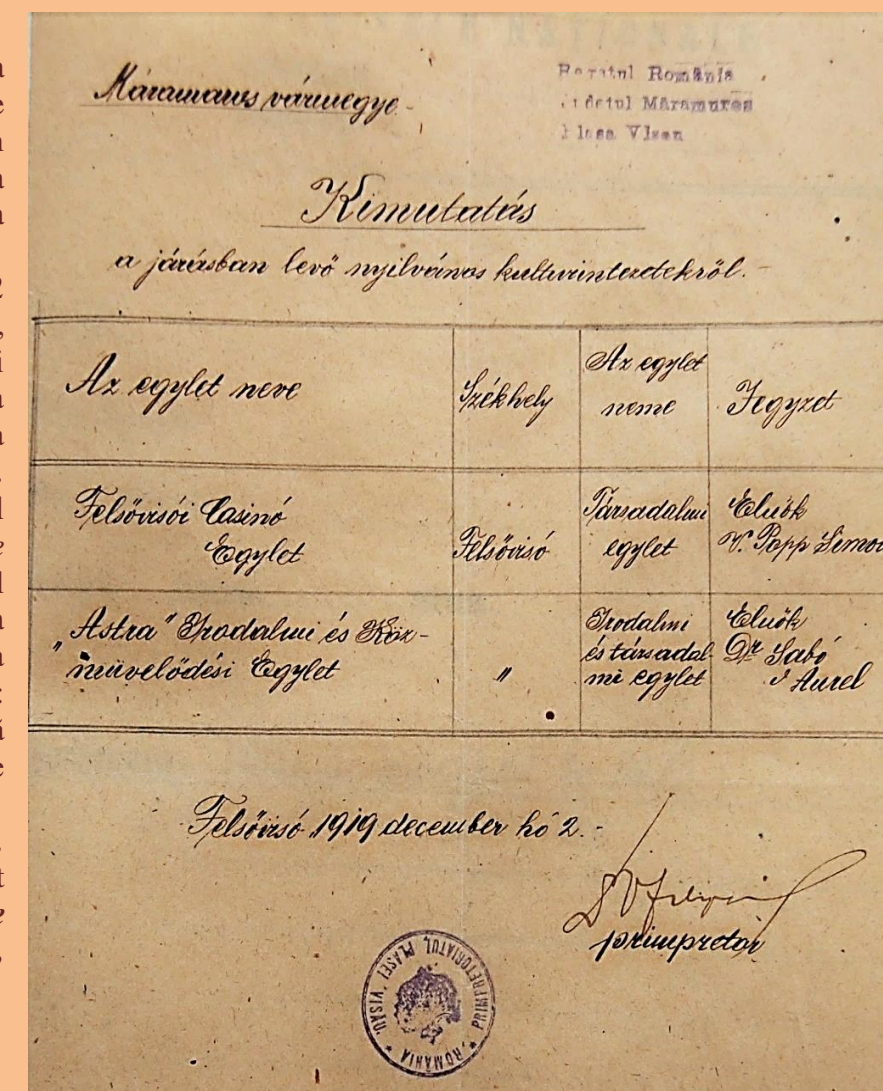 Máramaros vármegye.-
Regatul România
Județul Măramureș
Plasa Vizeu
Kimutatás
a járásban levő nyilvános kulturintezetekről.-
Az egylet neve
Székhely
Az egylet
neme
Jegyzet
Felsővisói Casinó
Egylet
Felsővisó
Társadalmi
egylet
Elnök
V. Popp Simon
„Astra" Irodalmi és Köz-
művelődési Egylet
"
Irodalmi
és társadal-
mi egylet
Elnök
Dr Szabó
Aurel
Felsővisó 1919 december hó 2.-
primpretor
PRIMPRETORIATUL PLASEI VISĂU * ROMÂNIA *